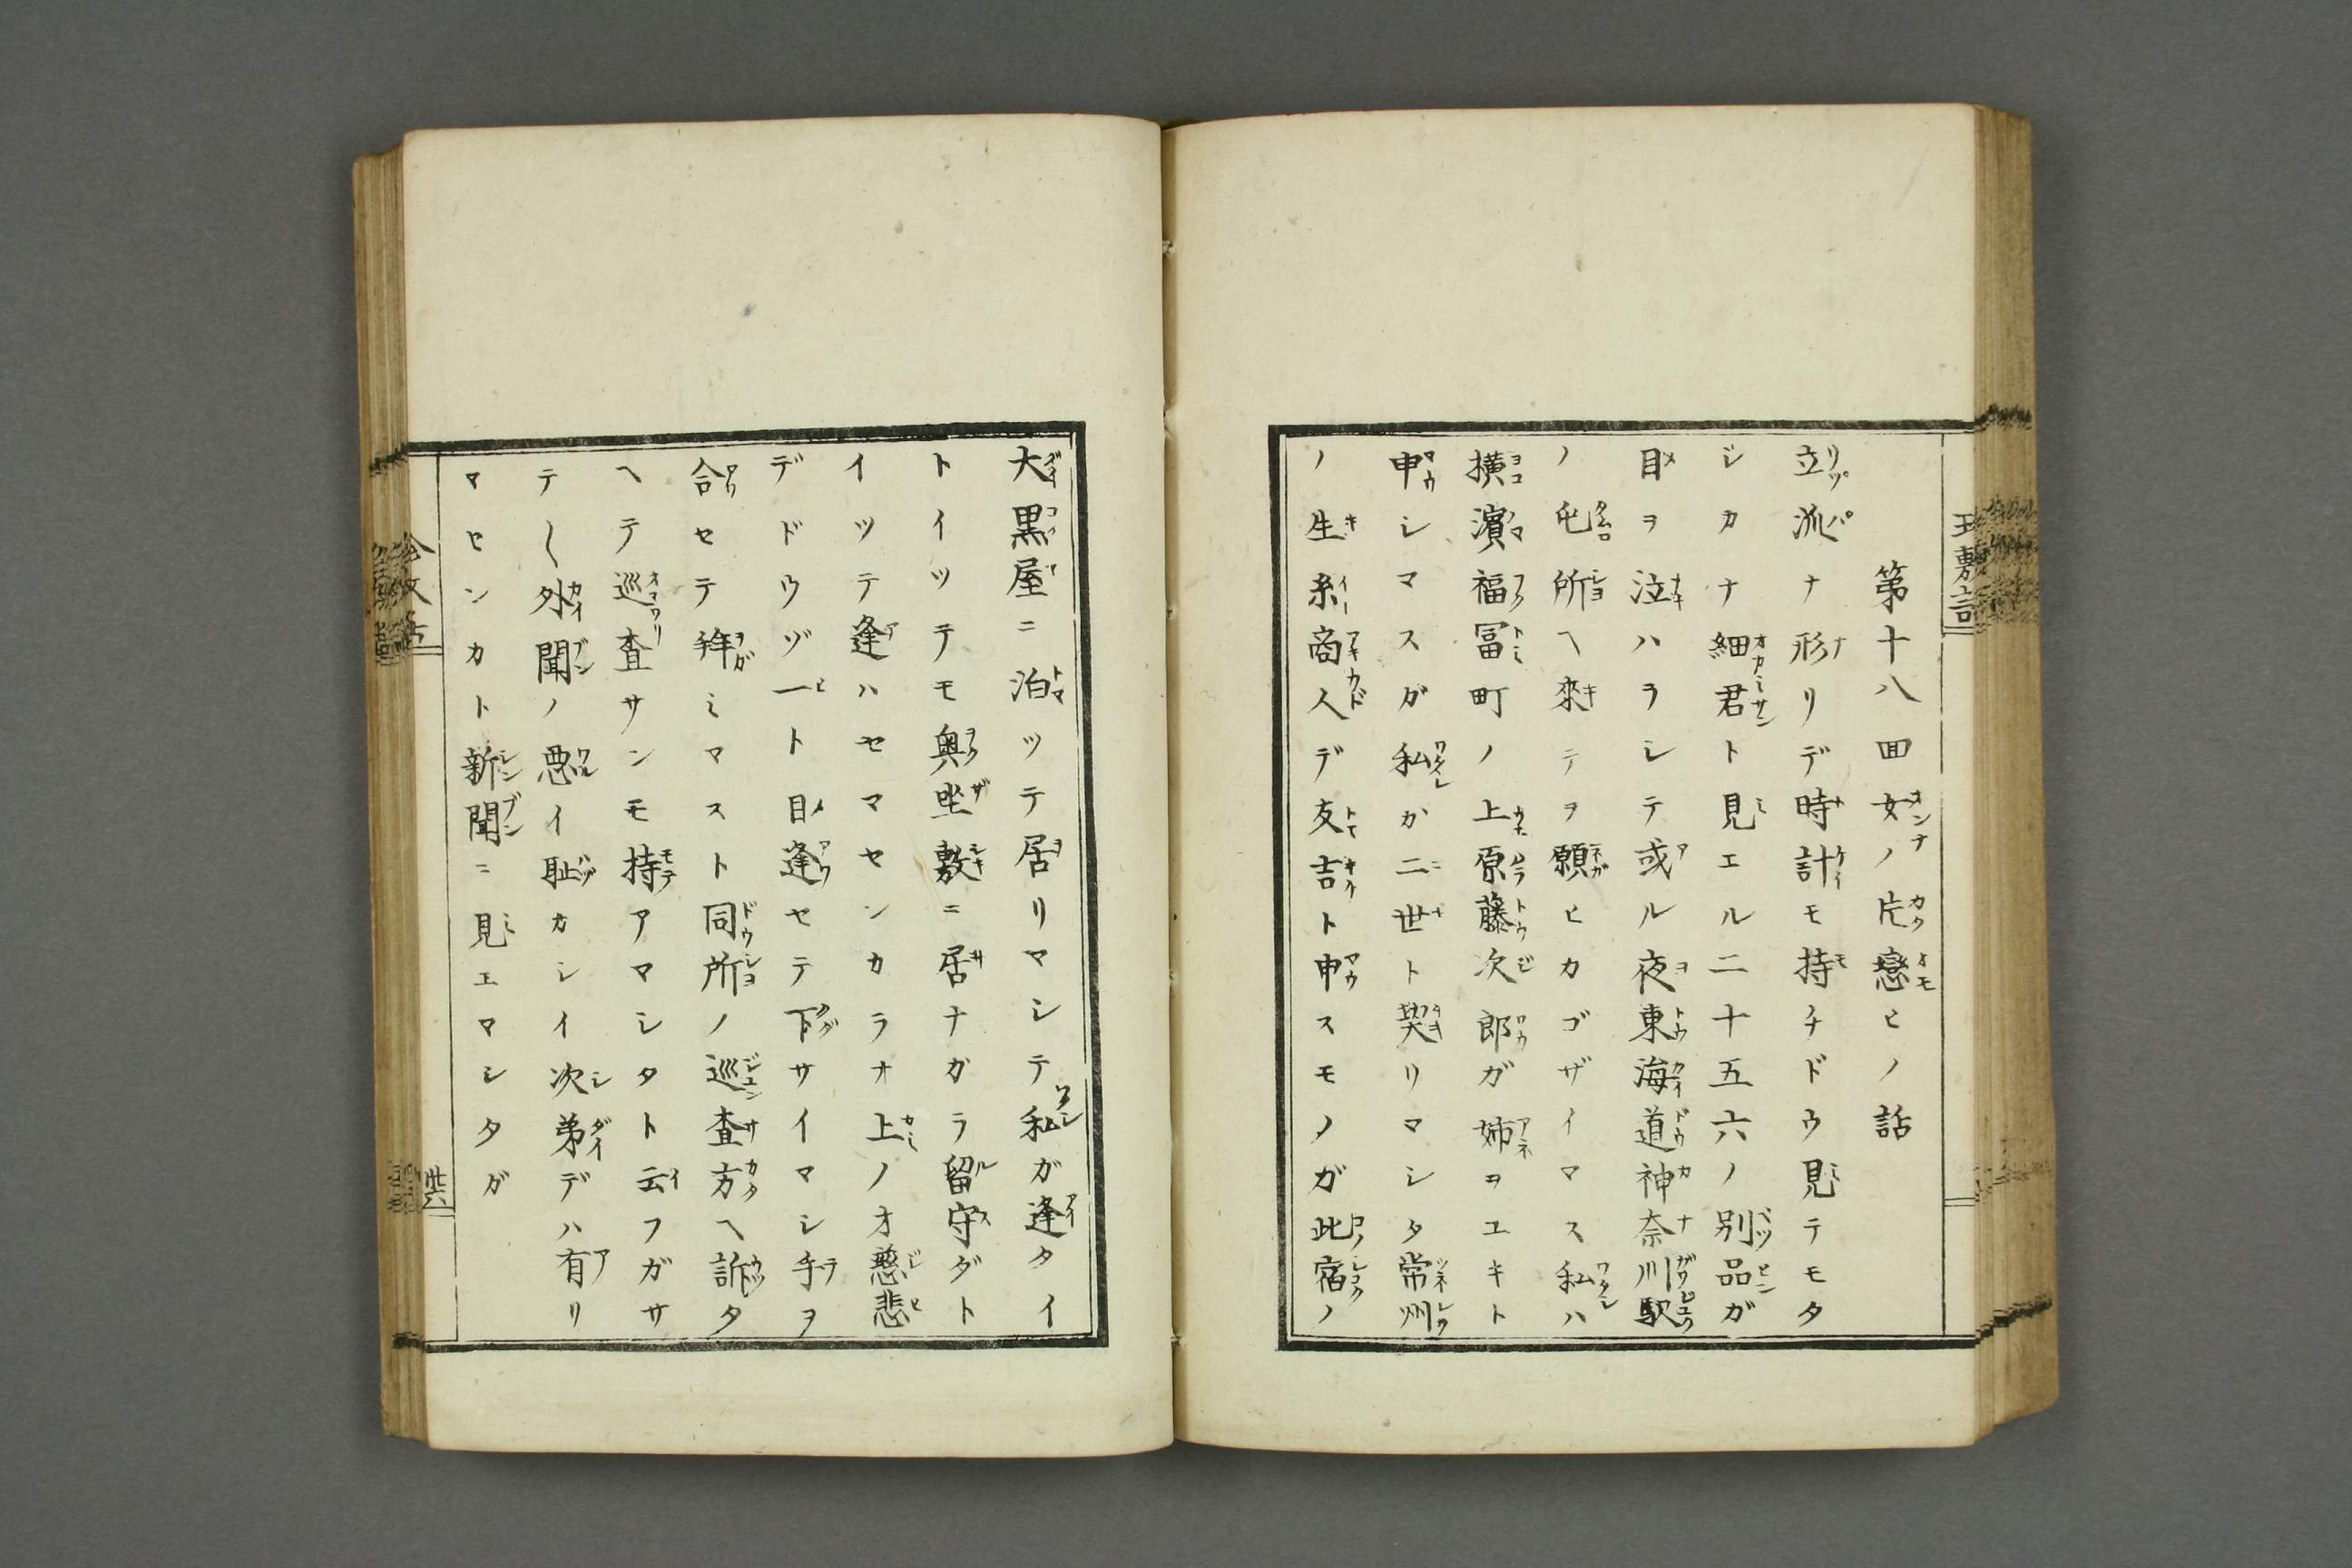 第十八回女ノ片戀ヒノ話
立派ナ形リデ時計モ持チドウ見テモタ
シカナ細君ト見エル二十五六ノ別品ガ
目ヲ泣ハラシテ或ル夜東海道神奈川駅
ノ屯所ヘ來テヲ願ヒカゴザイマス私ハ
横濱福冨町ノ上原藤次郎ガ姉ヲユキト
申シマスガ私か二世ト契リマシタ常州
ノ生糸商人デ友吉ト申スモノガ此宿ノ
大黒屋ニ泊ツテ居リマシテ私ガ逢タイ
トイツテモ奥坐敷ニ居ナガラ留守ダト
イツテ逢ハセマセンカラオ上ノオ慈悲
デドウゾ一ト目逢セテ下サイマシ手ヲ
合セテ拜ミマスト同所ノ巡査方ヘ訴タ
ヘテ巡査サンモ持アマシタト云フガサ
テ〳〵外聞ノ悪イ耻カシイ次弟デハ有リ
マセンカト新聞ニ見エマシタガ